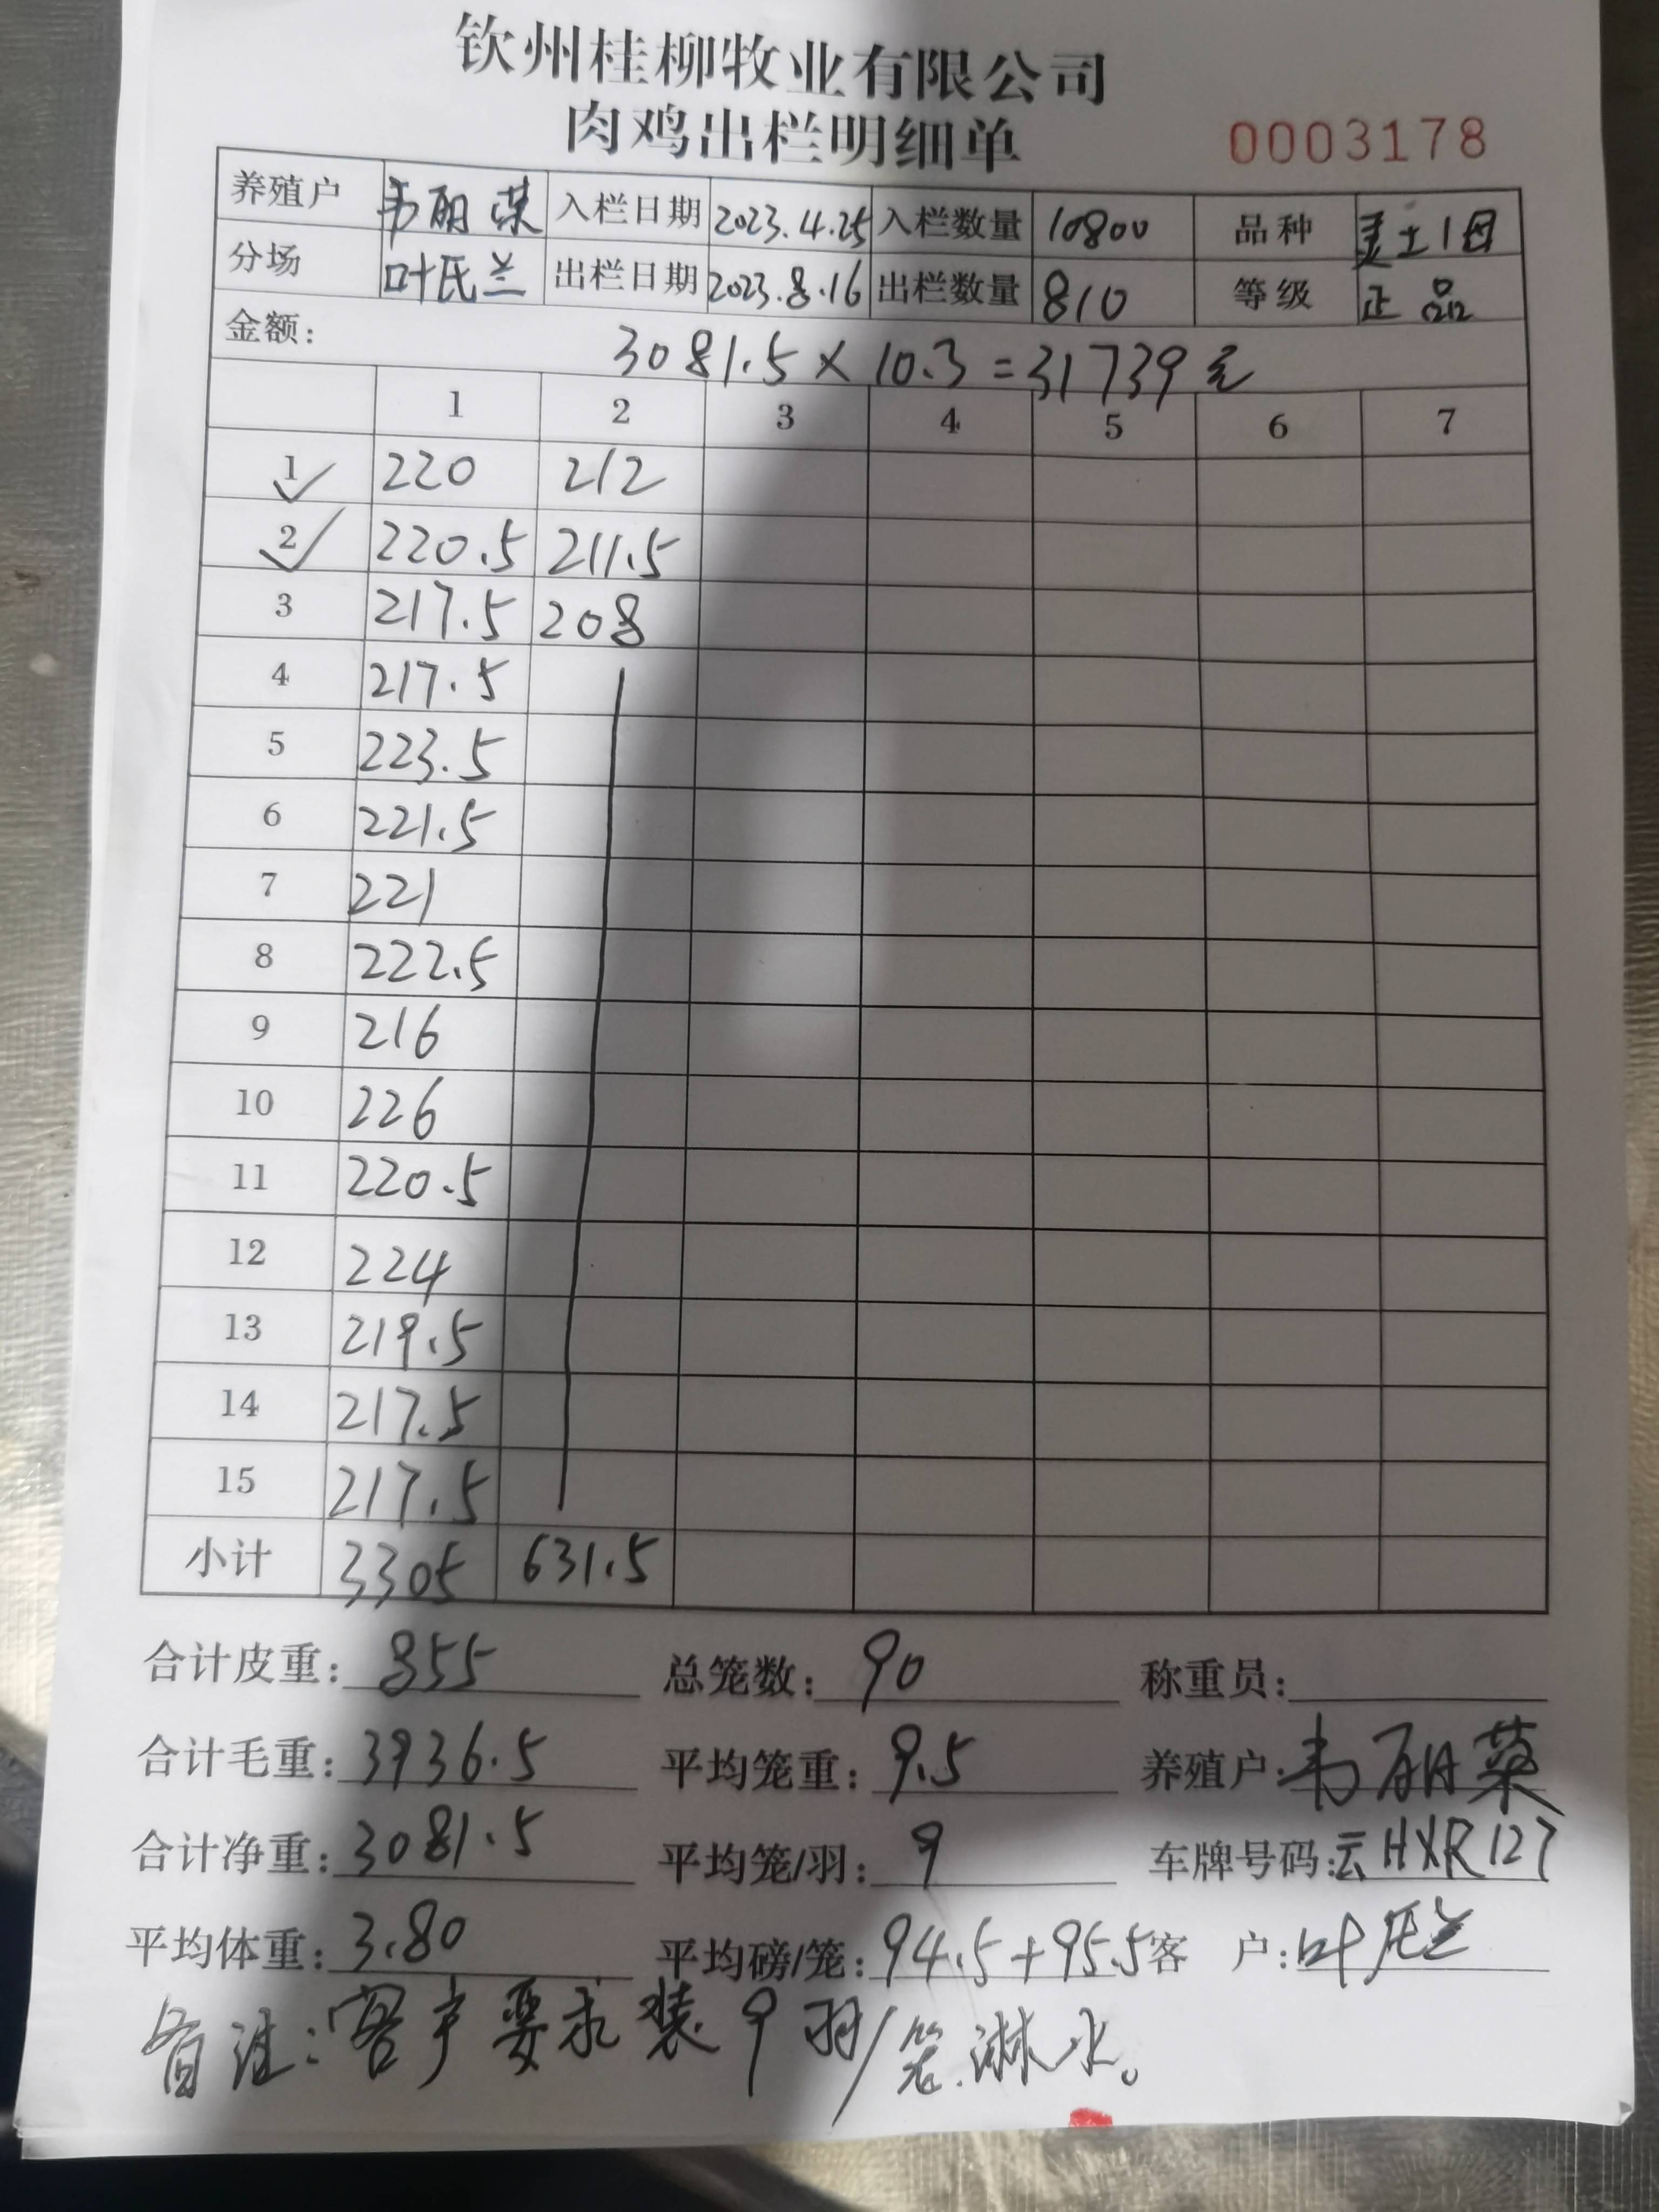 钦州桂柳牧业有限公司
肉鸡出栏明细单 0003178
养殖户 韦丽菜 入栏日期 2023.4.25 入栏数量 10800 品种 灵土1母
分场 叶氏兰 出栏日期 2023.8.16 出栏数量 810 等级 正品
金额: 3081.5 × 10.3 = 31739元
1 2 3 4 5 6 7
1 220 212
2 220.5 211.5
3 217.5 208
4 217.5
5 223.5
6 221.5
7 221
8 222.5
9 216
10 226
11 220.5
12 224
13 219.5
14 217.5
15 217.5
小计 3305 631.5
合计皮重: 855 总笼数: 90 称重员:
合计毛重: 3936.5 平均笼重: 9.5 养殖户: 韦丽菜
合计净重: 3081.5 平均笼/羽: 9 车牌号码: 云HXR127
平均体重: 3.80 平均磅/笼: 94.5+95.5 客 户: 叶氏兰
备注: 客户要求装9羽/笼.淋水。